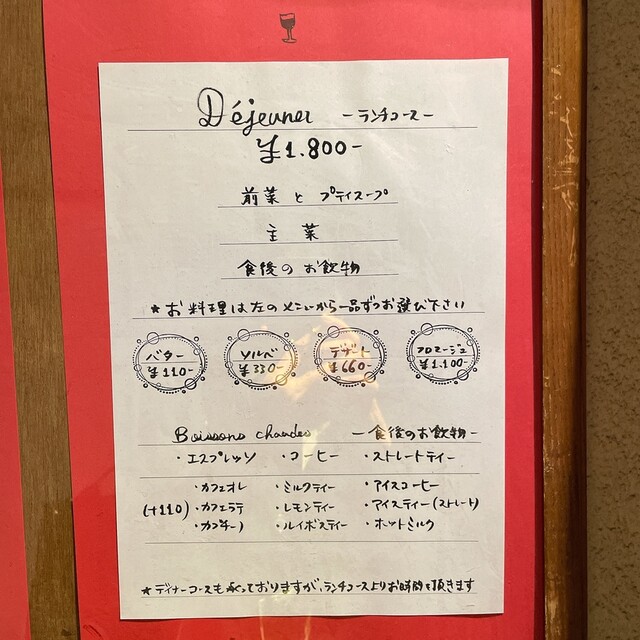 Déjeuner －ランチコース－
¥1.800-
前菜とプティスープ
主菜
食後のお飲物
★お料理は左のメニューから一品ずつお選び下さい
バター ソルベ デザート フロマージュ
¥110- ¥330- ¥660- ¥1.100-
Boissons chaudes －食後のお飲物－
・エスプレッソ ・コーヒー ・ストレートティー
・カフェオレ ・ミルクティー ・アイスコーヒー
(+110) ・カフェラテ ・レモンティー ・アイスティー(ストレート)
・カプチーノ ・ルイボスティー ・ホットミルク
★ディナーコースも承っておりますが、ランチコースよりお時間を頂きます